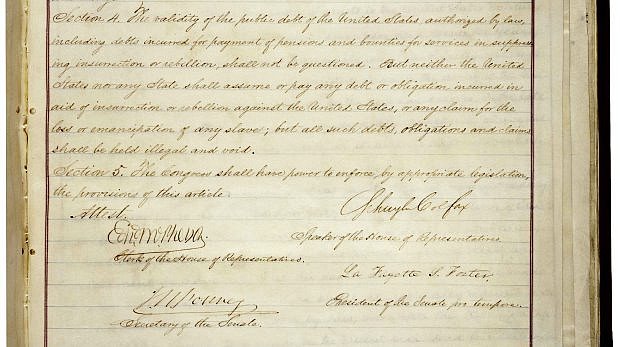 Section 4. The validity of the public debt of the United States, authorized by law,
including debts incurred for payment of pensions and bounties for services in suppress-
ing insurrection or rebellion, shall not be questioned. But neither the United
States nor any State shall assume or pay any debt or obligation incurred in
aid of insurrection or rebellion against the United States, or any claim for the
loss or emancipation of any slave; but all such debts, obligations and claims
shall be held illegal and void.
Section 5. The Congress shall have power to enforce, by appropriate legislation,
the provisions of this article.
Attest.
Schuyler Colfax
Edwd McPherson
Speaker of the House of Representatives.
Clerk of the House of Representatives.
La Fayette S. Foster
J. W. Forney
President of the Senate pro tempore.
Secretary of the Senate.